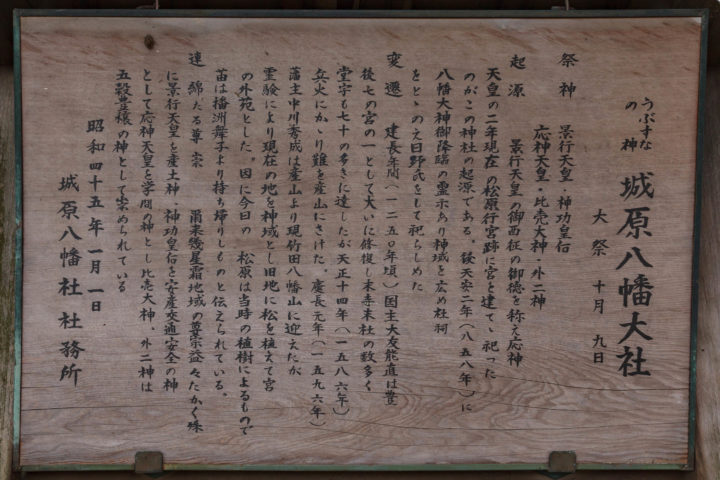 うぶすな
の神 城原八幡大社
大祭 十月 九日
祭神 景行天皇・神功皇后
応神天皇・比売大神・外二神
起源 景行天皇の御西征の御徳を称え応神
天皇の二年現在の松原行宮跡に宮を建てゝ祀った
のがこの神社の起源である。後天安二年(八五八年)に
八幡大神御降臨の霊示あり神域を広め社祠
をとゝのえ日野氏をして祀らしめた
変遷 建長年間(一二五〇年頃)国主大友能直は豊
後七の宮の一として大いに修復し末寺末社の数多く
堂宇も七十の多きに達したが天正十四年(一五八六年)
兵火にかゝり難を産山にさけた。慶長元年(一五九六年)
藩主中川秀成は産山より現竹田八幡山に迎えたが
霊験により現在の地を神域とし旧地に松を植えて宮
の外苑とした。因に今日の 松原は当時の植樹によるもので
苗は播洲舞子より持ち帰りしものと伝えられている。
連綿たる尊崇 爾来幾星霜地域の尊崇益々たかく殊
に景行天皇を産土神、神功皇后を安産交通安全の神
として応神天皇を学問の神とし比売大神、外二神は
五穀豊穣の神として崇められている
昭和四十五年一月一日
城原八幡社社務所